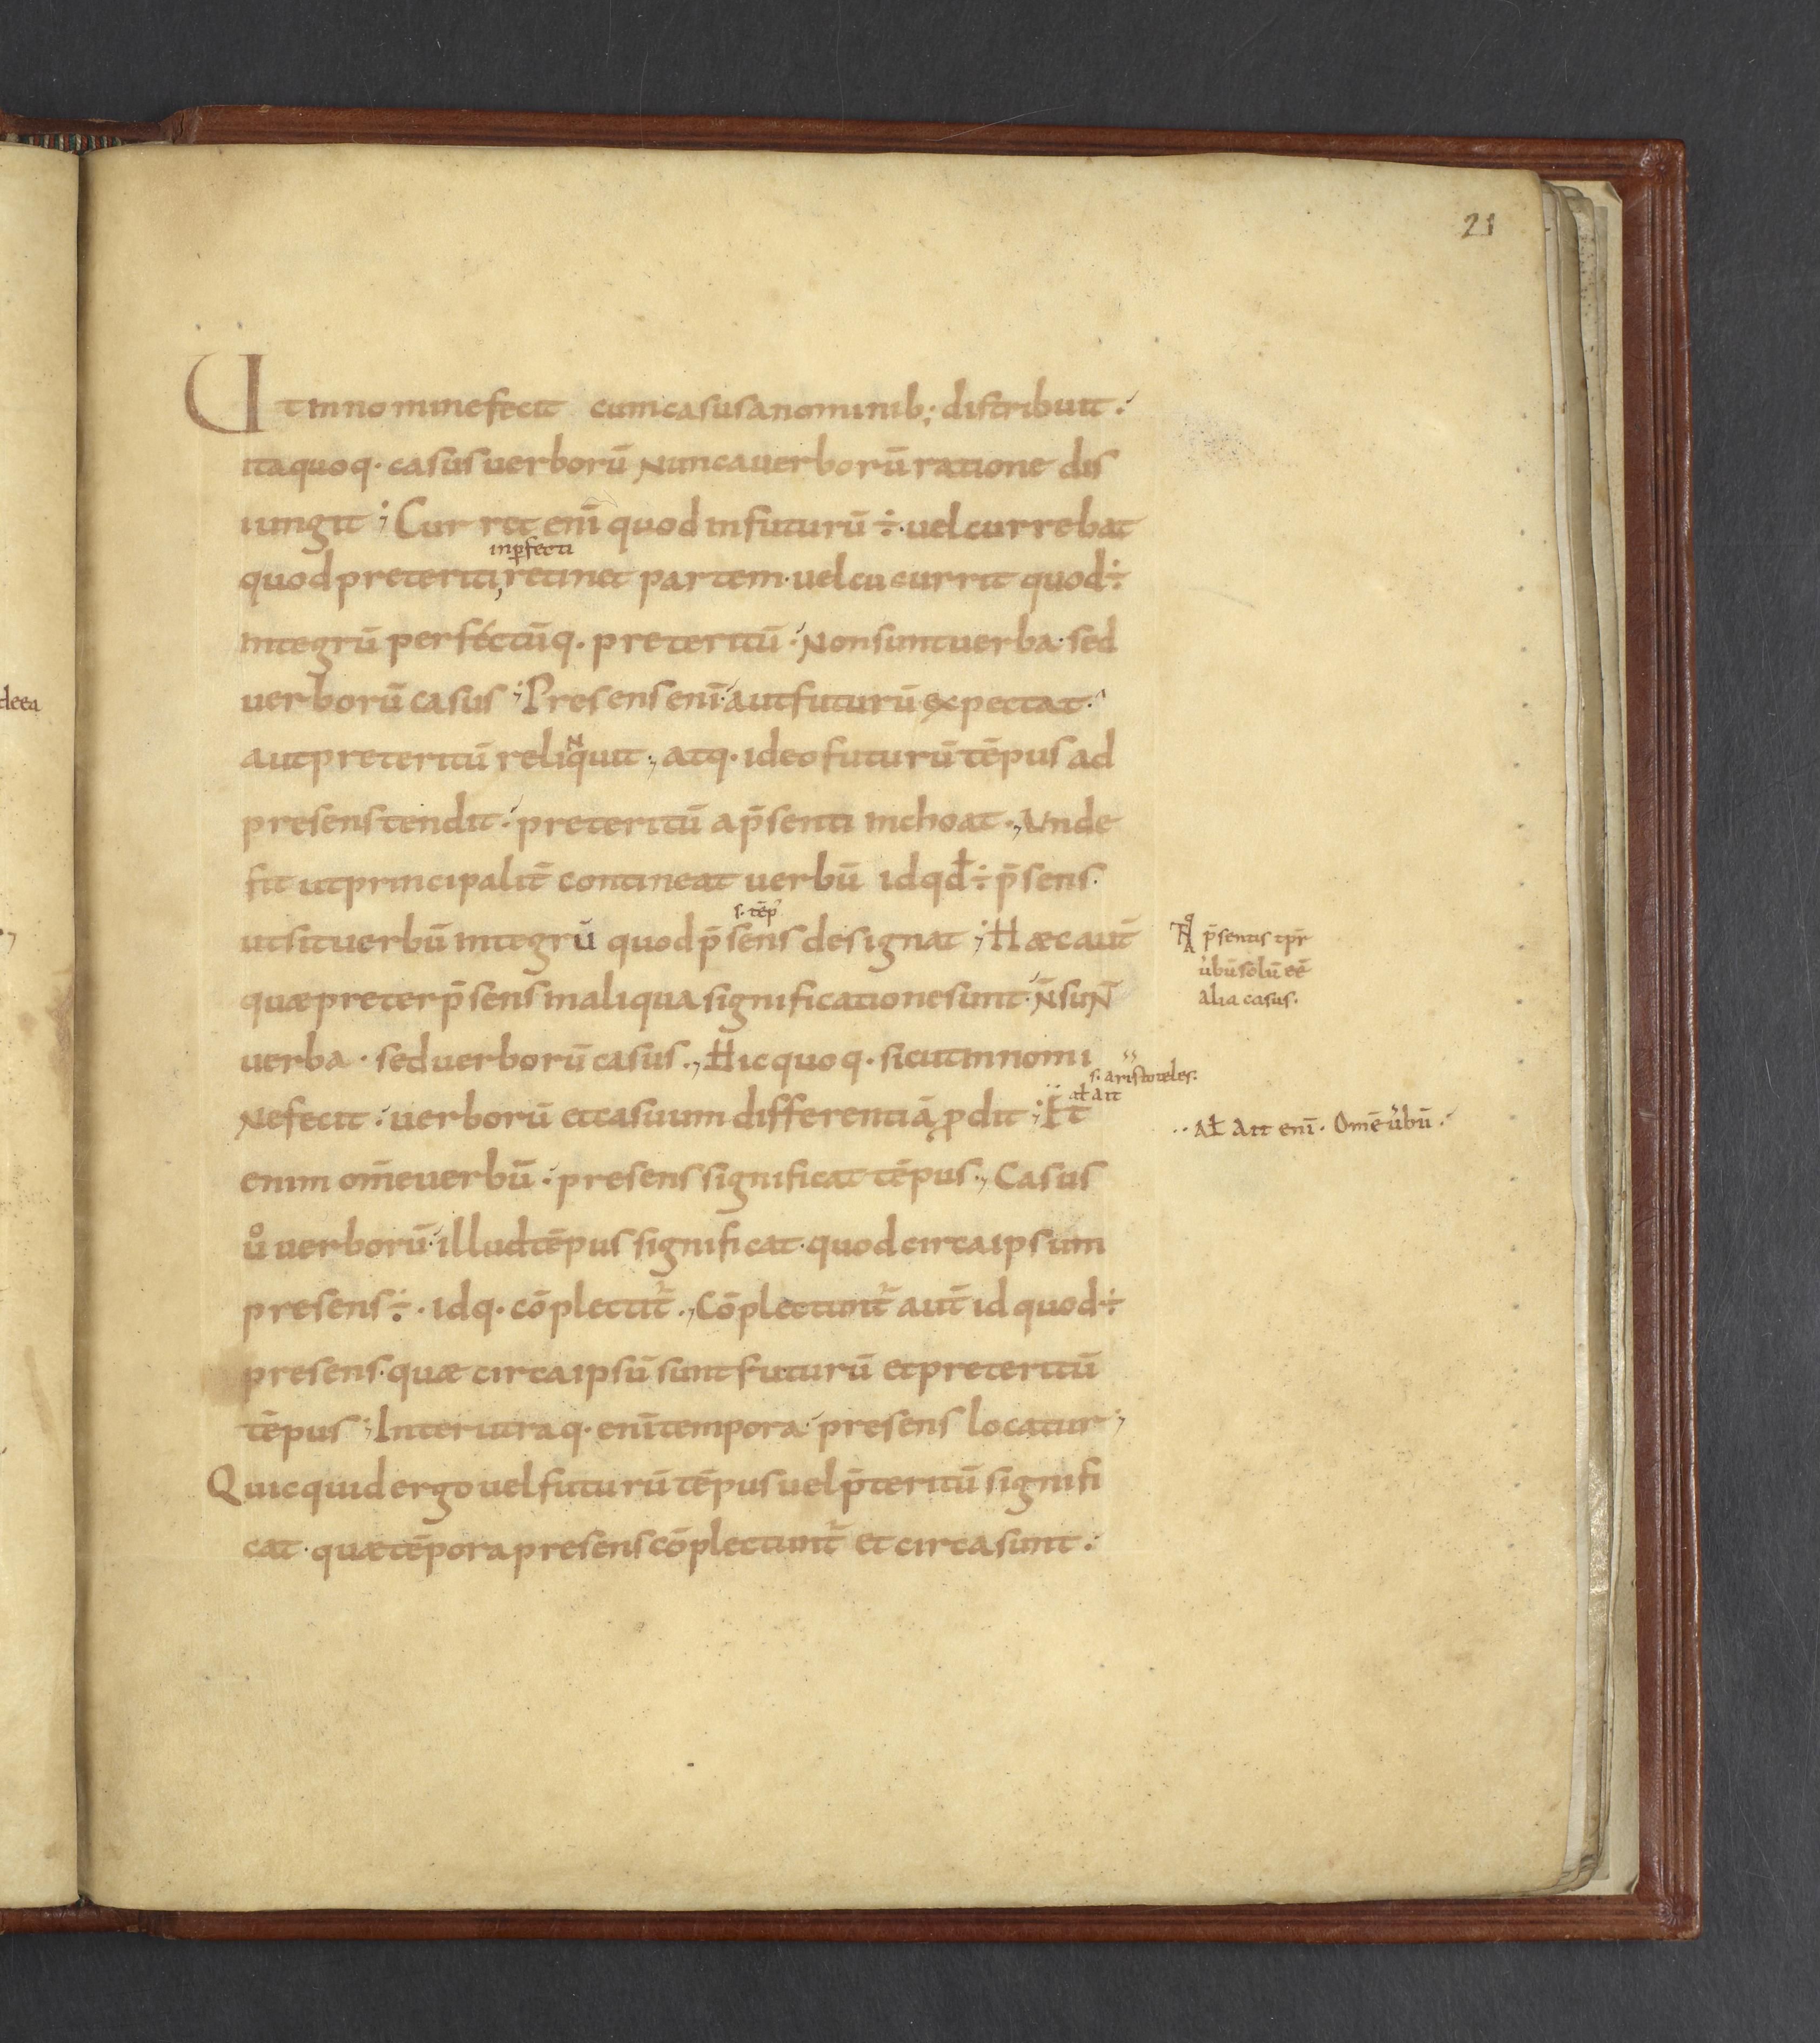 21
Ut in nomine fecit cum casus a nominib; distribuit.
ita quoq. casus verborū Nunc a verborū ratione dis
iungit; Curret enī quod in futurū ÷ vel currebat
inp̄fecti
quod preteriti, retinet partem. vel cucurrit quod ÷
integrū perfectūq. preteritū. Non sunt verba. sed
verborū casus; Presens enī. aut futurū expectat.
N
aut preteritū reliquit; atq. ideo futurū tēpus ad
presens tendit. preteritū a p̄senti inchoat., Unde
fit ut principalit̄ contineat verbū id qđ ÷ p̄sens.
s. tēp
ut sit verbū integrū quod p̄sens designat; Hæc aut̄
quæ preter p̄sens in aliqua significatione sunt. N̄ suN̄
verba. sed verborū casus., Hic quoq. sicut in nomi
s. aristoteles.
ał ait
Ne fecit. verborū et casuum differentiā, p̱dit; Et
enim om̄e verbū. presens significat tēpus., Casus
ůͦ verborū. illud tēpus significat. quod circa ipsum
presens ÷. idq. cōplectit̄., Cōplectunt̄ aut̄ id quod ÷
presens. quæ circa ipsū sunt futurū et preteritū
tēpus; Inter utraq. enī tempora. presens locatur;
Quicquid ergo vel futurū tēpus vel p̄teritū signifi
cat. quæ tēpora presens cōplectunt̄ et circa sunt.
p̄sentis tp̄r
u̓bū solū eē
alia casus.
.. Ał Ait enī. Om̄e u̓bū.
deea